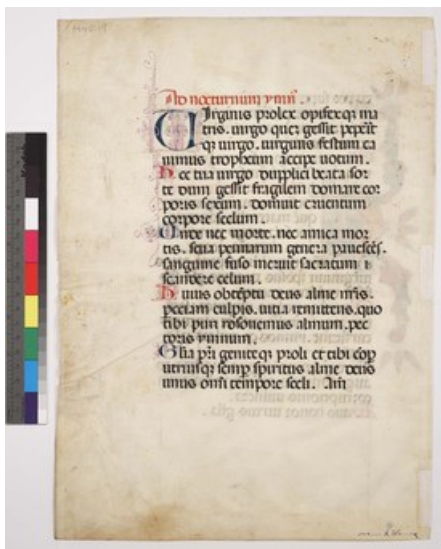 Ad nocturnum ymn
Virginis proles opifexq; ma
tris. uirgo quez gessit peperit
q; uirgo. uirginis festum ca
nimus tropheum accipe uotum.
Hec tua uirgo duplici beata sor
te dum gessit fragilem domare cor
poris sexum. domuit cruentum
corpore seclum.
Unde nec morte. nec amica mor
tis. seua penarum genera pauescēs.
sanguine fuso meruit sacratum
scandere celum.
Huius obtētu deus alme
peccam culpis. uitia remittens. quo
tibi puri resonemus almum. pec
toris ymnum.
Glia pri geniteq; proli et tibi cōp
utriusq; semp spiritus alme deus
unus omi tempore secli. Am